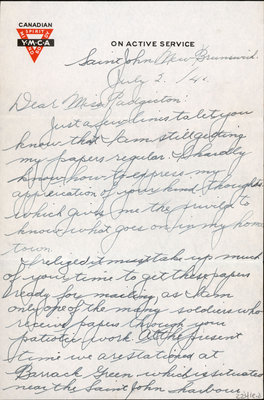 CANADIAN
SPIRIT
Y·M·C·A
MIND BODY
ON ACTIVE SERVICE
Saint John New Brunswick
July 2. /41.
Dear Miss Padginton:
Just a few lines to let you
know that I am still getting
my papers regular. I hardly
know how to express my
appreciation of your kind thoughts
which gives me the privilege to
know what goes on in my home
town.
I relize it must take up much
of your time to get these papers
ready for mailing, as I am
only one of the many soldiers who
receive papers through your
patriotic work. At the present
time we are stationed at
Barrack Green which is situated
near the Saint John harbour.